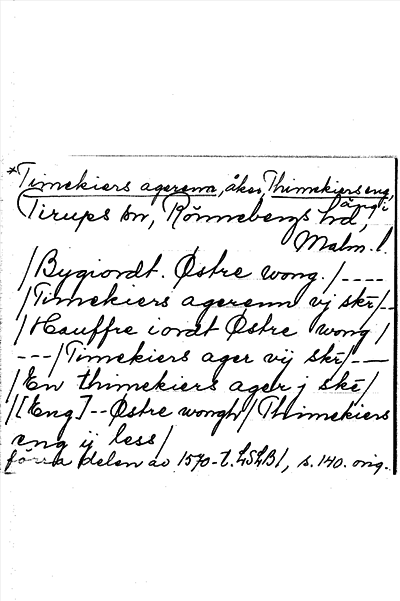 *Timekiers agerenn, åker, Thimekiers eng,
äng i
Tirups sn, Rönnebergs hd,
Malm. l.
/Bygiordt. Østre wong./----
/Timekiers agerenn vj skē/--
/Hauffre iordt Østre wong/
---/Timekiers ager vij skē/--
/En thimekiers ager j skē/
/[Eng]--Østre wongh/Thimekiers
eng ij less/
förra delen av 1570-t. LSLB1, s. 140. orig.